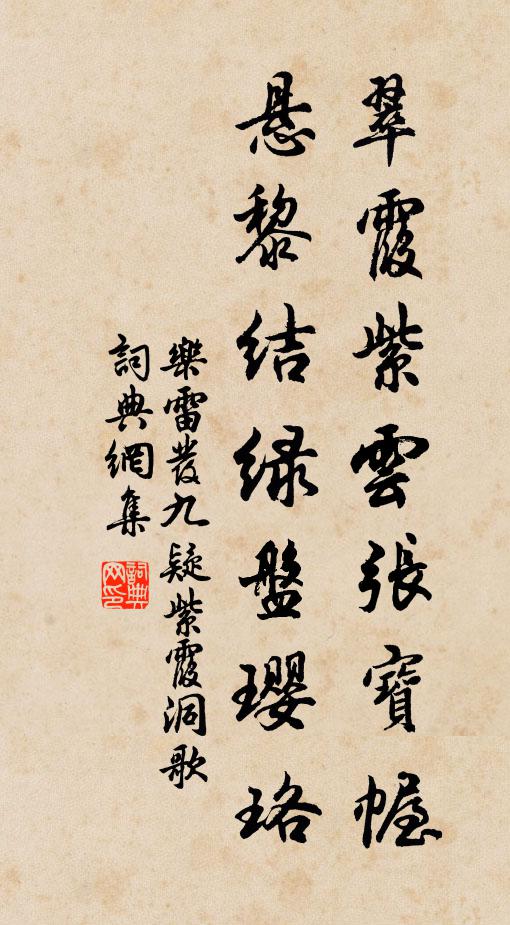 翠霞紫雲張寶幄
悬黎结緑盤瓔珞
樂雷發九疑紫霞洞歌
詞典網集
詞典网印